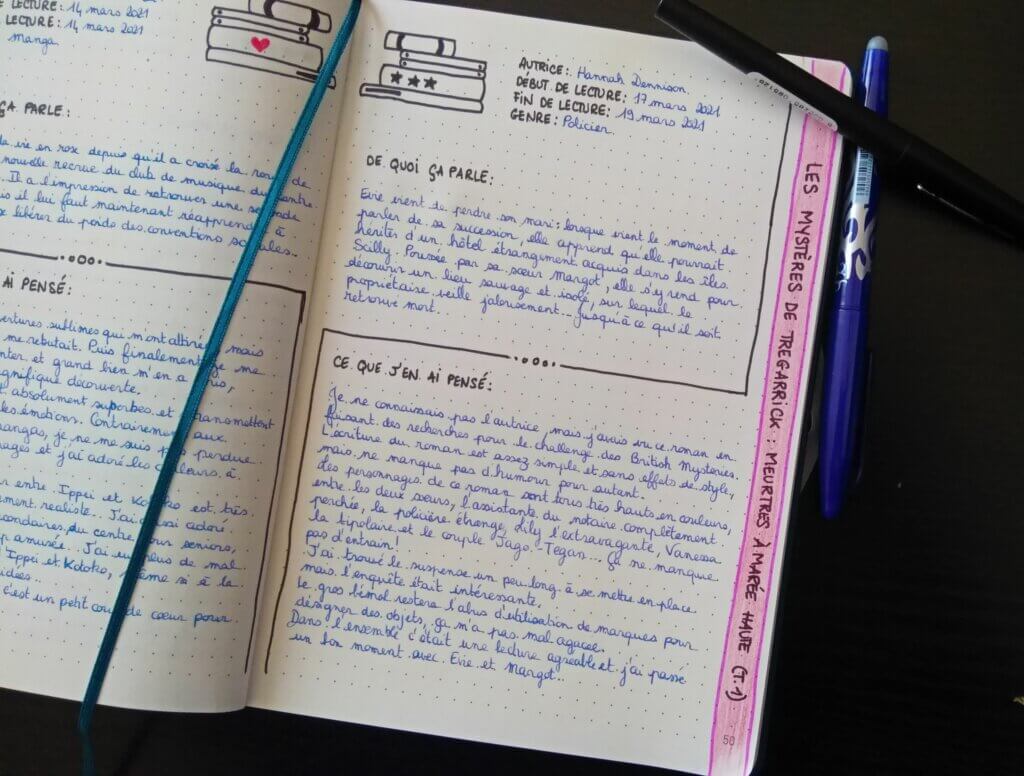 E LECTURE: 14 mars 2021
LECTURE: 14 mars 2021
manga
ÇA PARLE:
la vie en rose depuis qu'il a croisé la route de
nouvelle recrue du club de musique du centre.
Il a l'impression de retrouver une seconde
is il lui faut maintenant réapprendre à
libérer du poids des conventions sociales..
AI PENSÉ:
ertures sublimes qui m'ont attirée, mais
me rebutait. Puis finalement je me
nter et grand bien m'en a pris,
gnifique découverte.
absolument superbes et transmettent
les émotions. Contrairement aux
mangas, je ne me suis pas perdue
ages et j'ai adoré les couleurs à
entre Ippei et Kotoko est très
ement réaliste. J'ai aussi adoré
condaires du centre pour seniors,
p amusée. J'ai eu plus de mal
Ippei et Kotoko, même si à la
idées..
c'est un petit coup de coeur pour
AUTRICE: Hannah Dennison
DÉBUT DE LECTURE: 17 mars 2021
FIN DE LECTURE: 19 mars 2021
GENRE: Policier
DE QUOI ÇA PARLE:
Evie vient de perdre son mari; lorsque vient le moment de
parler de sa succession, elle apprend qu'elle pourrait
hériter d'un hôtel étrangement acquis dans les îles
Scilly. Poussée par sa sœur Margot, elle s'y rend pour
découvrir un lieu sauvage et isolé, sur lequel le
propriétaire veille jalousement... jusqu'à ce qu'il soit
retrouvé mort...
CE QUE J'EN AI PENSÉ:
Je ne connaissais pas l'autrice, mais j'avais vu ce roman en
faisant des recherches pour le challenge des British Mysteries.
L'écriture du roman est assez simple et sans effets de style,
mais ne manque pas d'humour pour autant.
Les personnages de ce roman sont tous très hauts en couleurs,
entre les deux sœurs, l'assistante du notaire complètement
perchée, la policière étrange, Lily l'extravagante, Vanessa
la tipolaire et le couple Jago-Tegan... Ça ne manque
pas d'entrain!
J'ai trouvé le suspense un peu long à se mettre en place
mais l'enquête était intéressante.
Le gros bémol restera l'abus d'utilisation de marques pour
désigner des objets, ça m'a pas mal agacée.
Dans l'ensemble c'était une lecture agréable et j'ai passé
un bon moment avec Evie et Margot...
LES MYSTÈRES DE TREGARRICK : MEURTRES À MARÉE HAUTE (T.1)
50